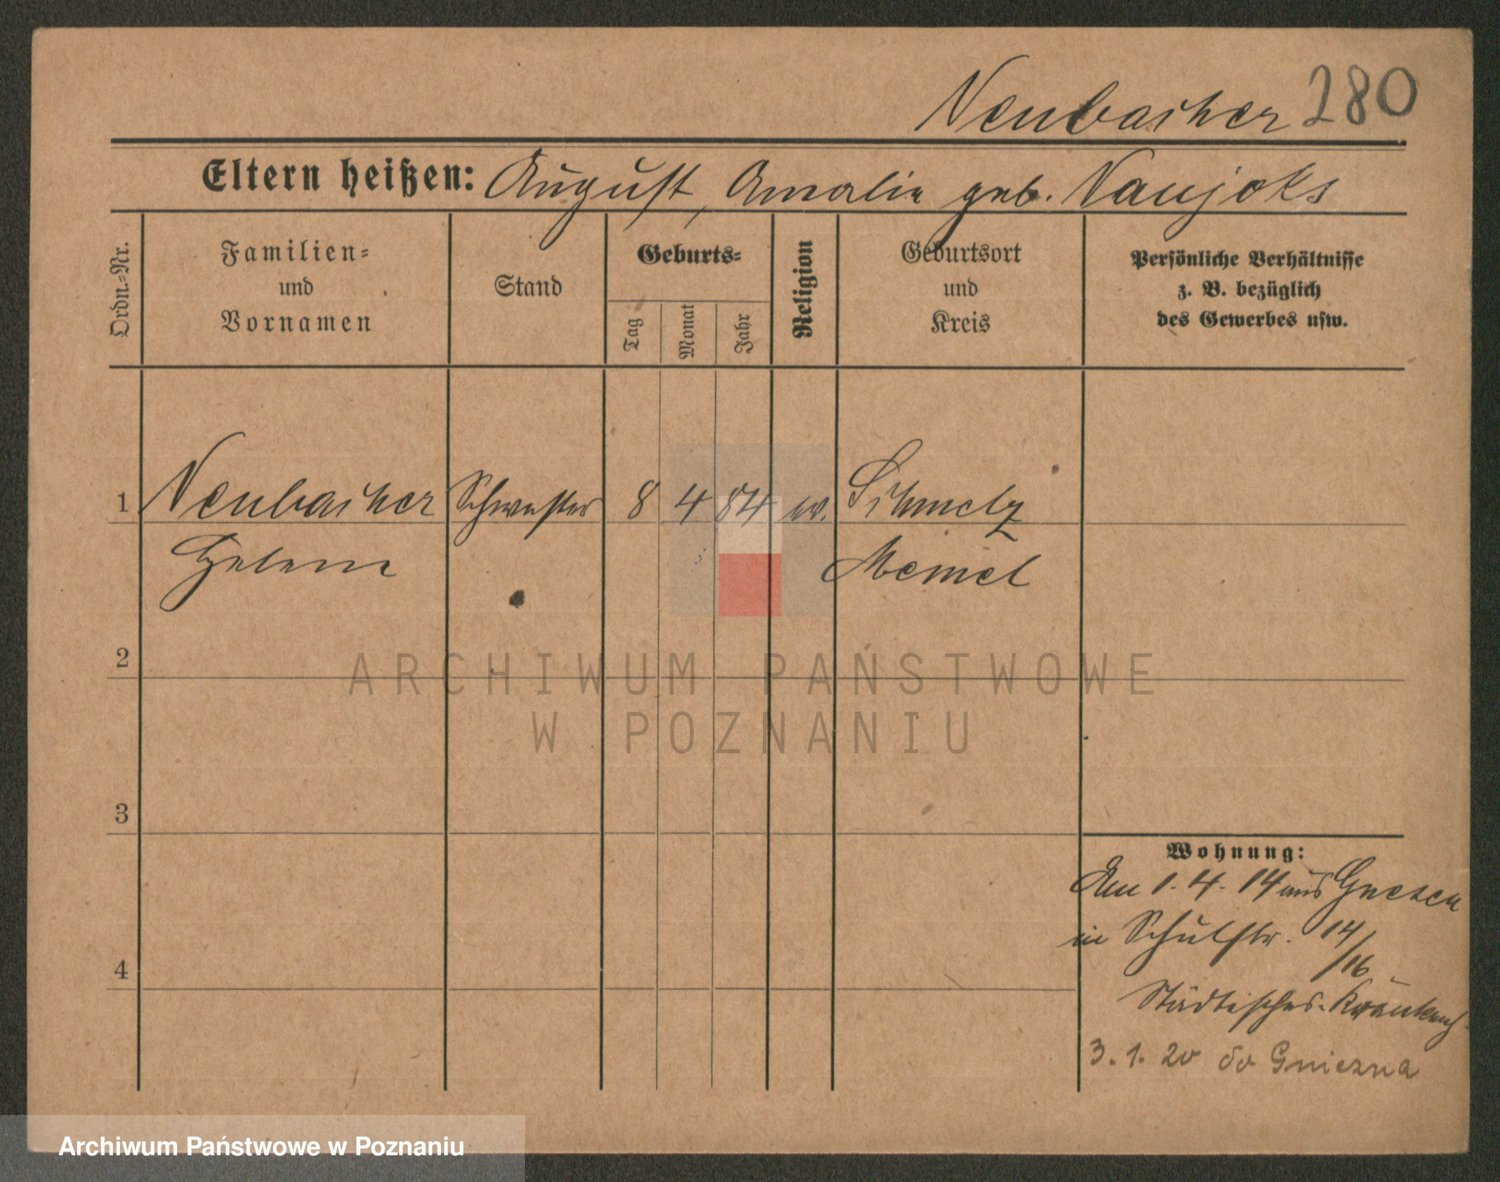 Neubacher 280
Eltern heißen: August, Amalie geb. Naujoks
Ordn.-Nr.
Familien-
und
Vornamen
Stand
Geburts-
Tag
Monat
Jahr
Religion
Geburtsort
und
Kreis
Persönliche Verhältnisse
z. B. bezüglich
des Gewerbes usw.
1 Neubacher Schwester 8 4 84 ev. Schmelz
Helene Memel
2
ARCHIWUM PAŃSTWOWE
W POZNANIU
3
Wohnung:
Am 1. 4. 14 aus Gnesen
in Schulstr. 14/16
4
Städtisches Krankenh.
3. 1. 20 do Gniezna
Archiwum Państwowe w Poznaniu